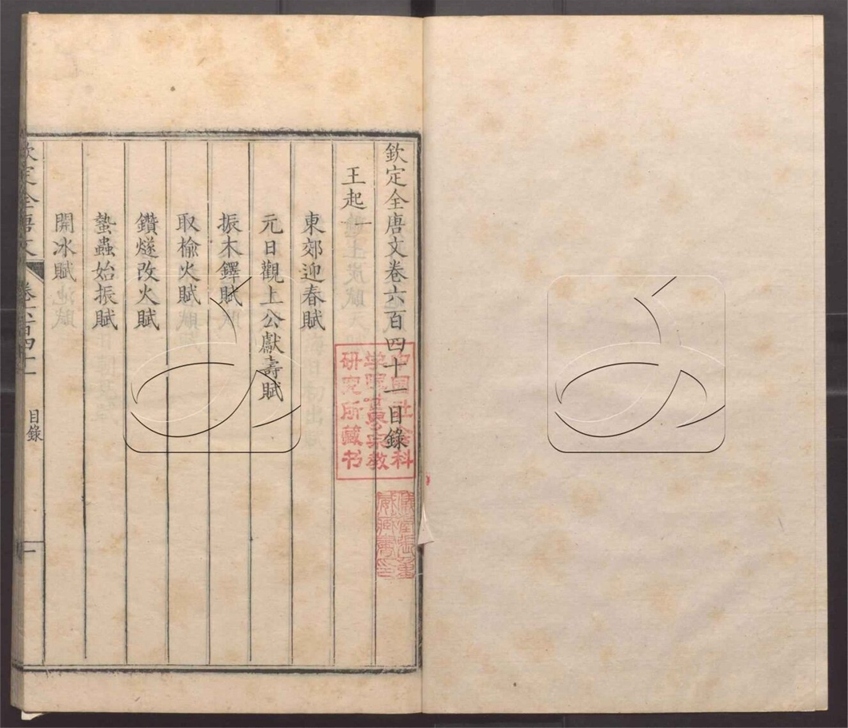 欽定全唐文卷六百四十一目錄
王起一
東郊迎春賦
元日觀上公獻壽賦
振木鐸賦
取榆火賦
鑽燧改火賦
蟄蟲始振賦
開冰賦
欽定全唐文
卷六百四十一
目錄
一
中国社会科
学院世界宗教
研究所藏书